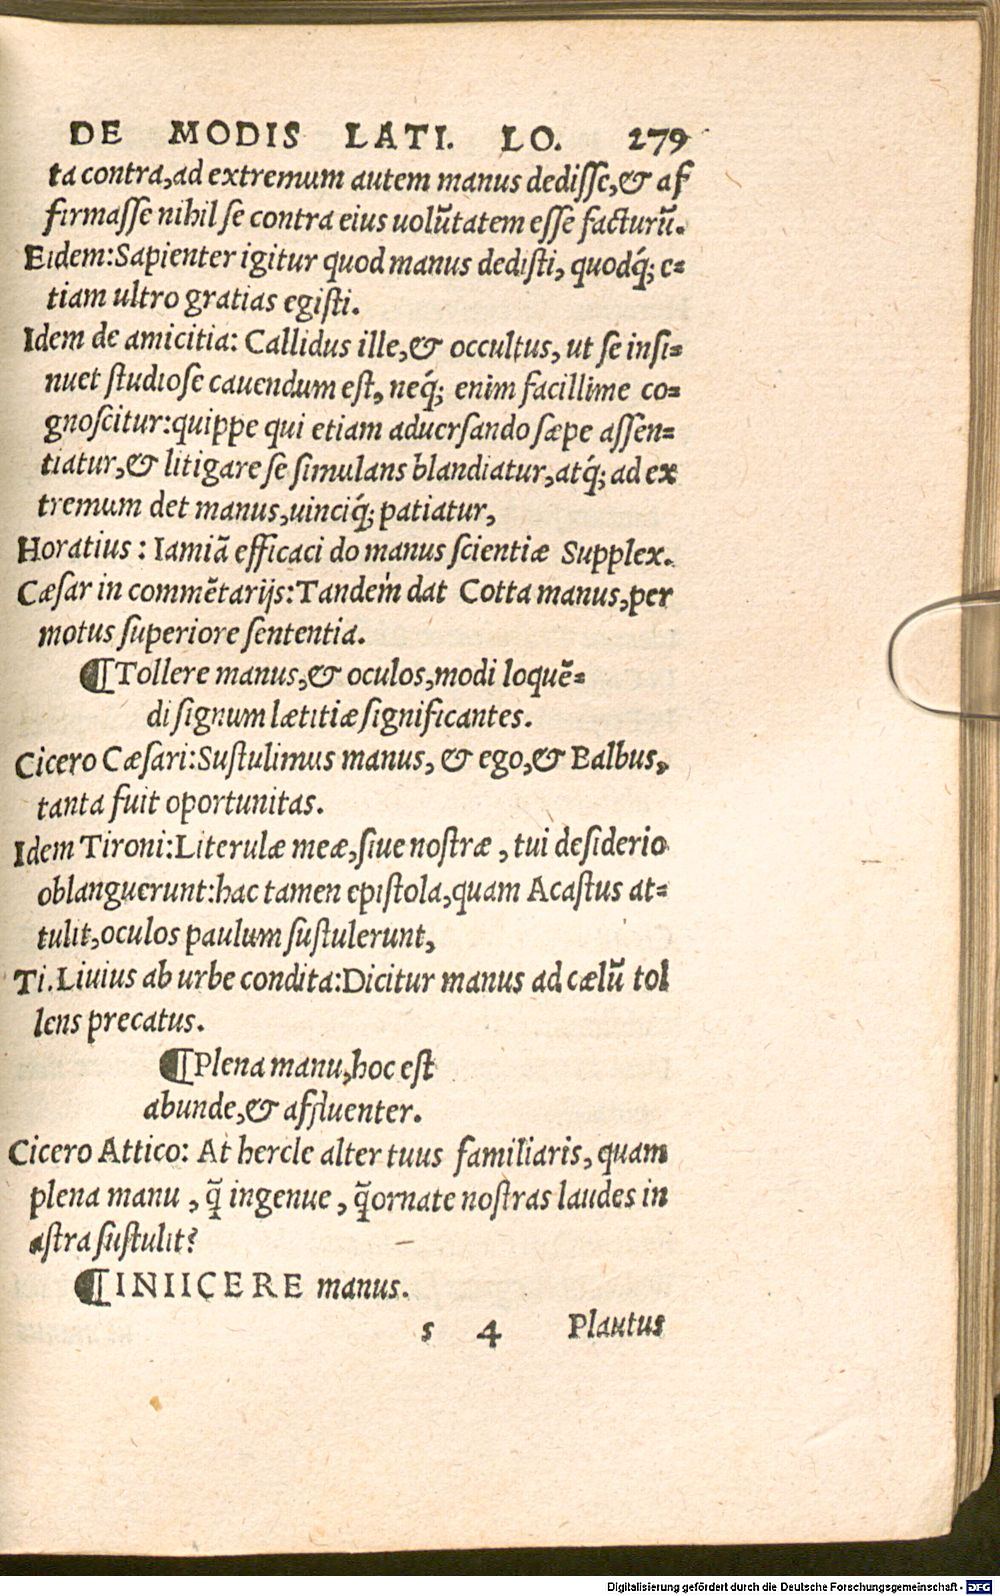 DE MODIS LATI. LO. 279
ta contra, ad extremum autem manus dedisse, & af
firmasse nihil se contra eius uolũtatem esse facturũ.
Eidem: Sapienter igitur quod manus dedisti, quodq́; e-
tiam ultro gratias egisti.
Idem de amicitia: Callidus ille, & occultus, ut se insi-
nuet studiose cauendum est, neq́; enim facillime co-
gnoscitur: quippe qui etiam aduersando sæpe assen-
tiatur, & litigare se simulans blandiatur, atq́; ad ex
tremum det manus, uinciq́; patiatur,
Horatius: Iamiã efficaci do manus scientiæ Supplex.
Cæsar in commẽtarijs: Tandem dat Cotta manus, per
motus superiore sententia.
¶ Tollere manus, & oculos, modi loquẽ-
di signum lætitiæ significantes.
Cicero Cæsari: Sustulimus manus, & ego, & Balbus,
tanta fuit oportunitas.
Idem Tironi: Literulæ meæ, siue nostræ, tui desiderio
oblanguerunt: hac tamen epistola, quam Acastus at-
tulit, oculos paulum sustulerunt,
Ti. Liuius ab urbe condita: Dicitur manus ad cælũ tol
lens precatus.
¶ Plena manu, hoc est
abunde, & affluenter.
Cicero Attico: At hercle alter tuus familiaris, quam
plena manu, q̃ ingenue, q̃ ornate nostras laudes in
astra sustulit?
¶ INIICERE manus.
s 4 Plautus
Digitalisierung gefördert durch die Deutsche Forschungsgemeinschaft - DFG